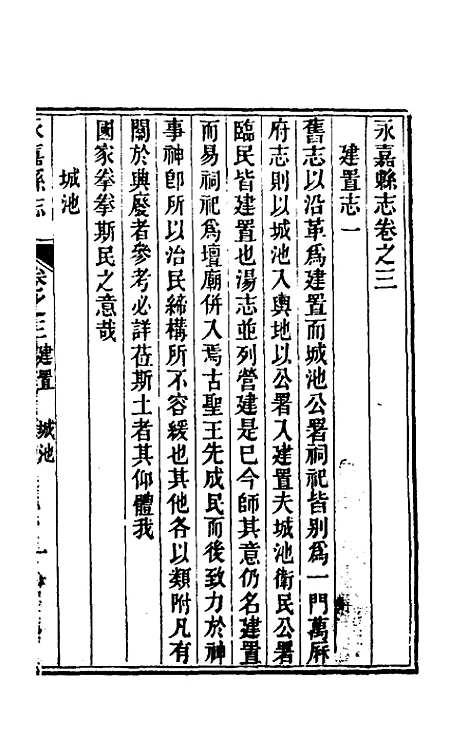 永嘉縣志卷之三
建置志一
舊志以沿革爲建置而城池公署祠祀皆别爲一門萬厤
府志則以城池入輿地以公署入建置夫城池衛民公署
臨民皆建置也湯志並列營建是已今師其意仍名建置
而易祠祀爲壇廟併入焉古聖王先成民而後致力於神
事神卽所以治民締構所不容緩也其他各以類附凡有
關於典廢者參考必詳莅斯土者其仰體我
國家拳拳斯民之意哉
城池
永嘉縣志 卷之三建置 城池 一